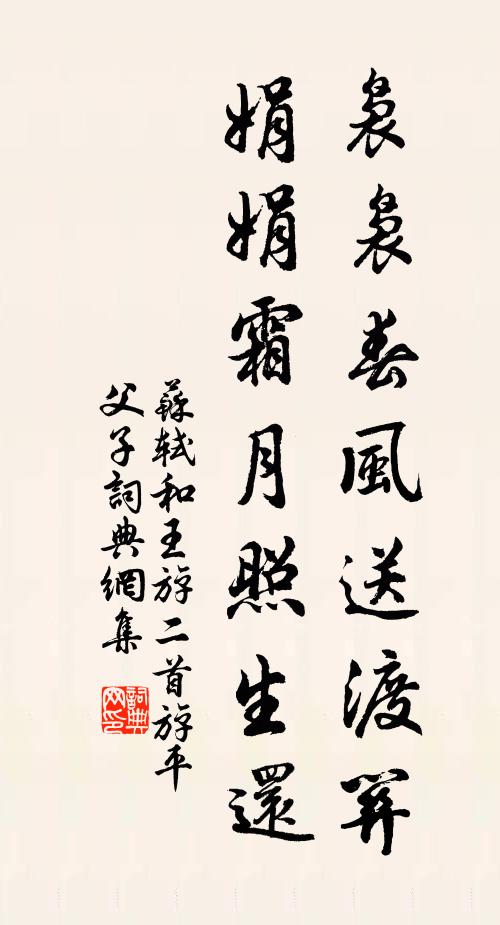 裊裊春風送渡關
娟娟霜月照生還
蘇軾和王斿二首斿平
父子詞典網集
詞典
网印